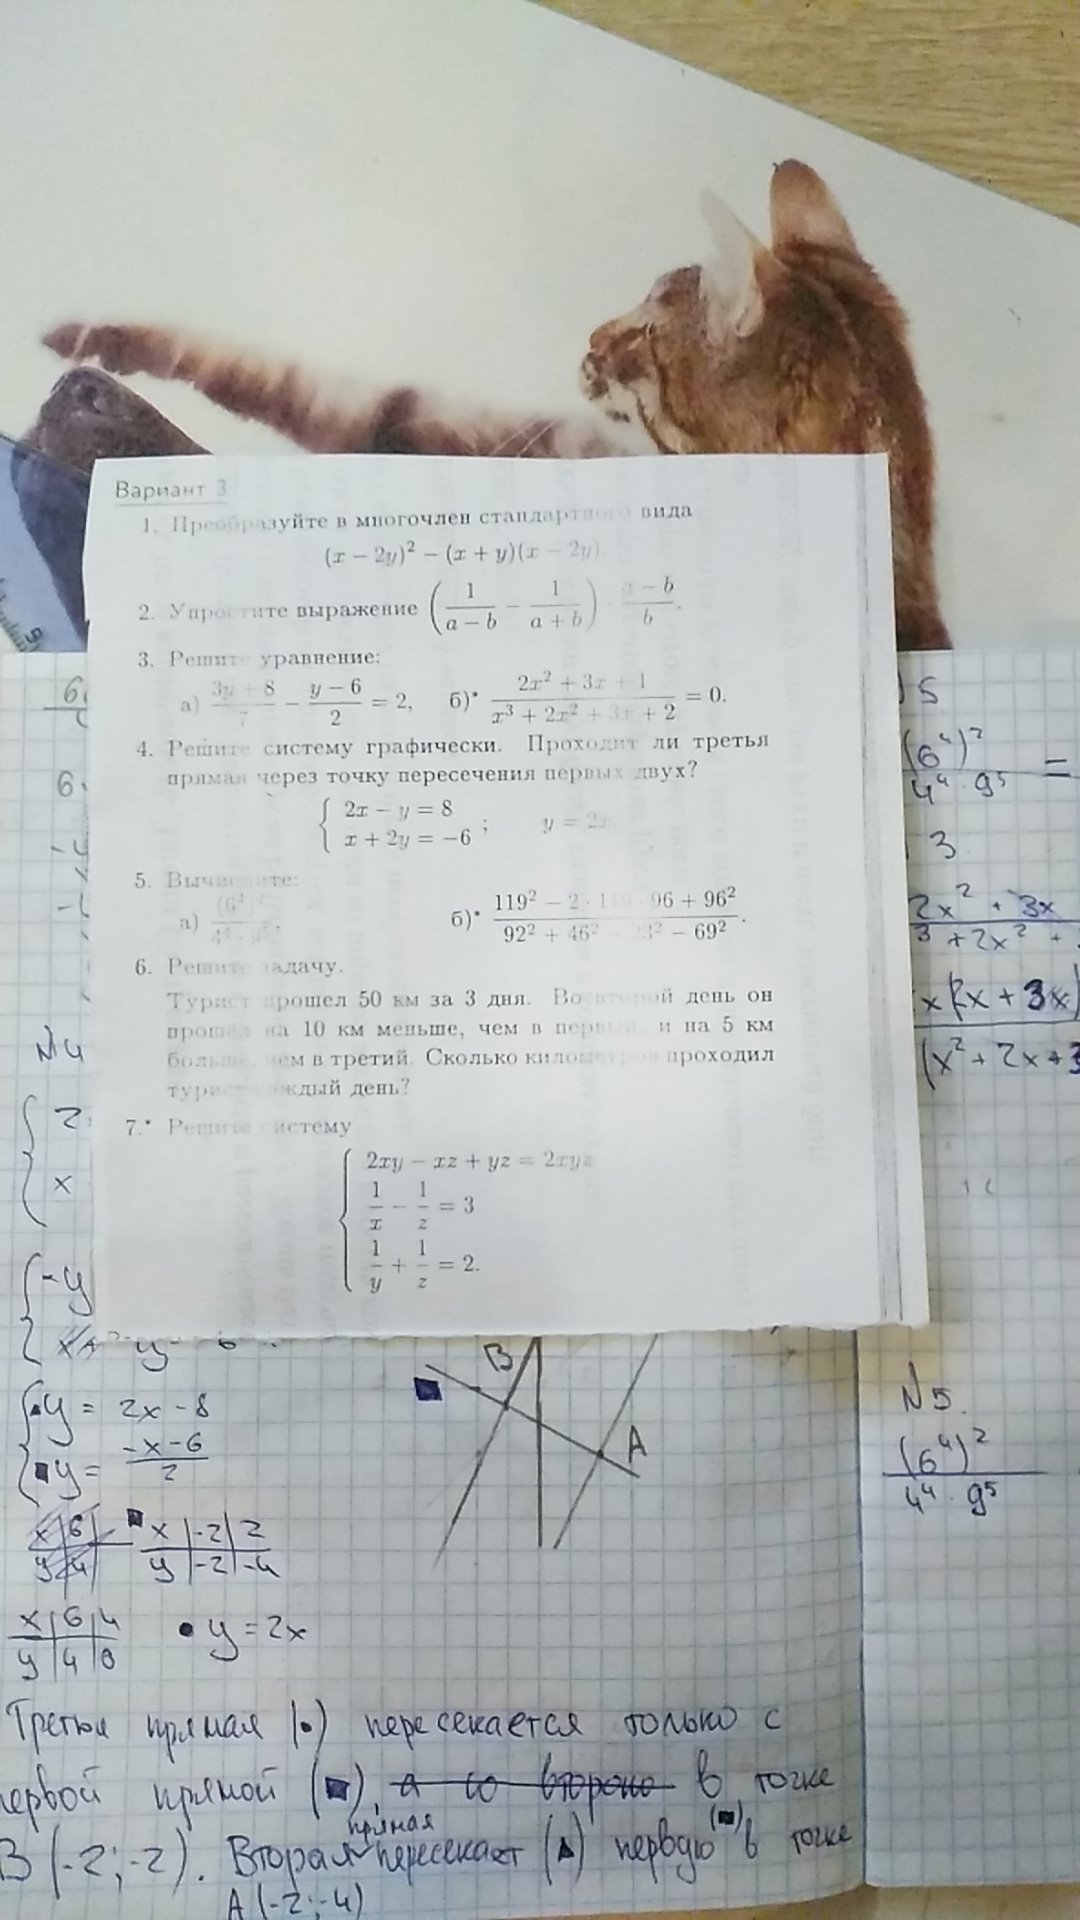 Вариант 3
1. Преобразуйте в многочлен стандартного вида
(x − 2y)² − (x + y)(x − 2y).
2. Упростите выражение (1/(a − b) − 1/(a + b)) · (a − b)/b.
3. Решите уравнение:
а) (3y + 8)/7 − (y − 6)/2 = 2, б)* (2x² + 3x + 1)/(x³ + 2x² + 3x + 2) = 0.
4. Решите систему графически. Проходит ли третья
прямая через точку пересечения первых двух?
{ 2x − y = 8
x + 2y = −6 ; y = 2x.
5. Вычислите:
а) б)* (119² − 2 · 119 · 96 + 96²)/(92² + 46² − 23² − 69²).
6. Решите задачу.
Турист прошел 50 км за 3 дня. Во второй день он
прошел на 10 км меньше, чем в первый, и на 5 км
больше, чем в третий. Сколько километров проходил
турист каждый день?
7.* Решите систему
{ 2xy − xz + yz = 2xyz
1/x − 1/z = 3
1/y + 1/z = 2.
6
6
N4
{ 2
x
{ -y
{ y = 2x - 8
y = (-x-6)/2
x | 6
y | 4
x | -2 | 2
y | -2 | -4
x | 6 | 4
y | 4 | 0
• y = 2x
B
A
Третья прямая (•) пересекается только с
первой прямой (■), а со второю в точке
B (-2;-2). Вторая прямая пересекает (▲) первую (■) в точке
A (-2;-4)
5
(6⁴)²/(4⁴ · 9⁵) =
3
2x² + 3x
3 + 2x² +
x(2x + 3x)
(x² + 2x + 3
N5.
(6⁴)²/(4⁴ · 9⁵)